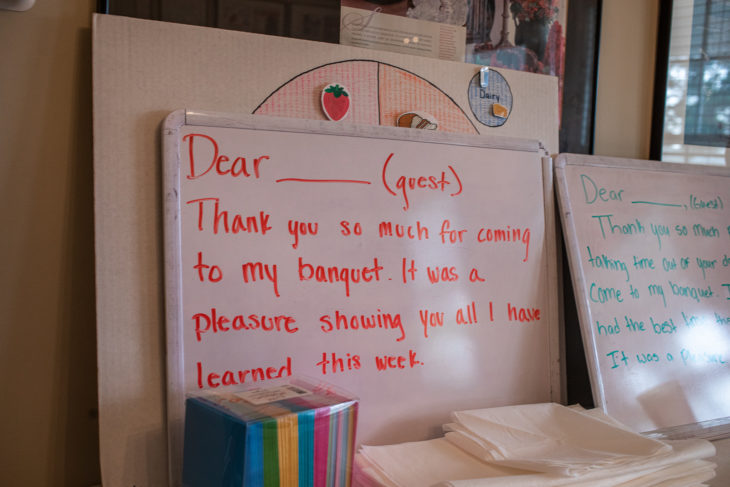 Dairy
Dear ______ (guest)
Thank you so much for coming
to my banquet. It was a
pleasure showing you all I have
learned this week.
Dear ______, (Guest)
Thank you so much
taking time out of your
Come to my banquet. I
had the best
It was a